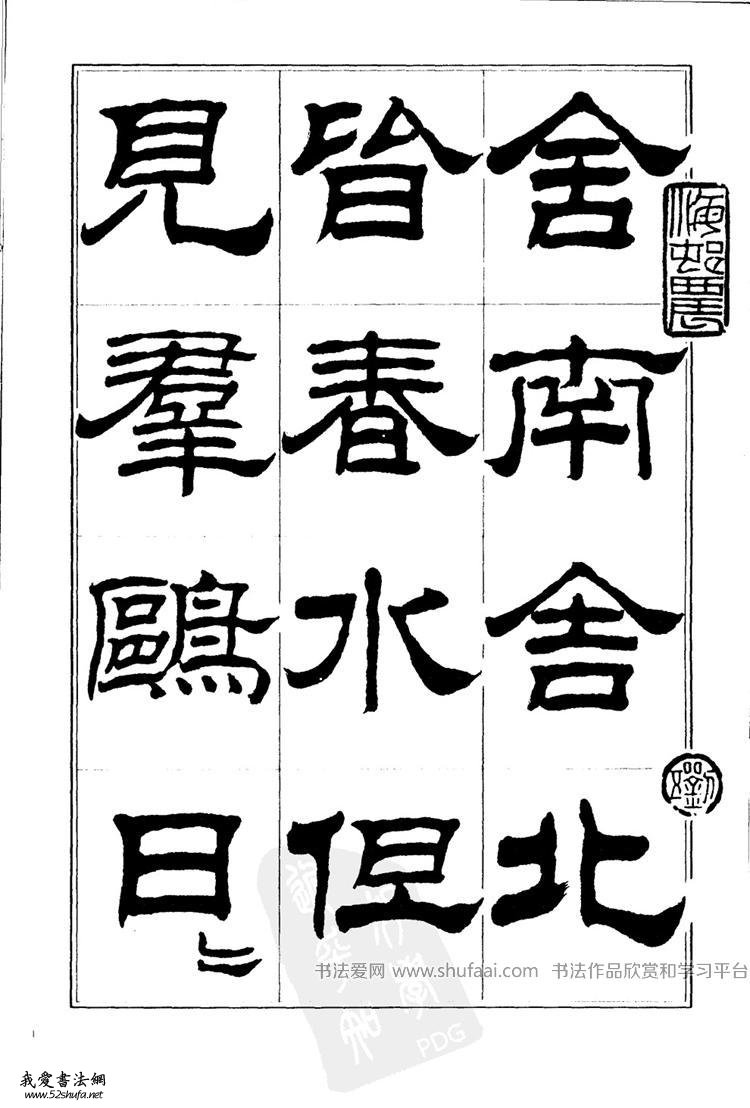 舍南舍北
皆春水但
見羣鷗日
〻
書法爱网 www.shufaai.com 书法作品欣赏和学习平台
PDG
1
我爱書法網
www.52shufa.net